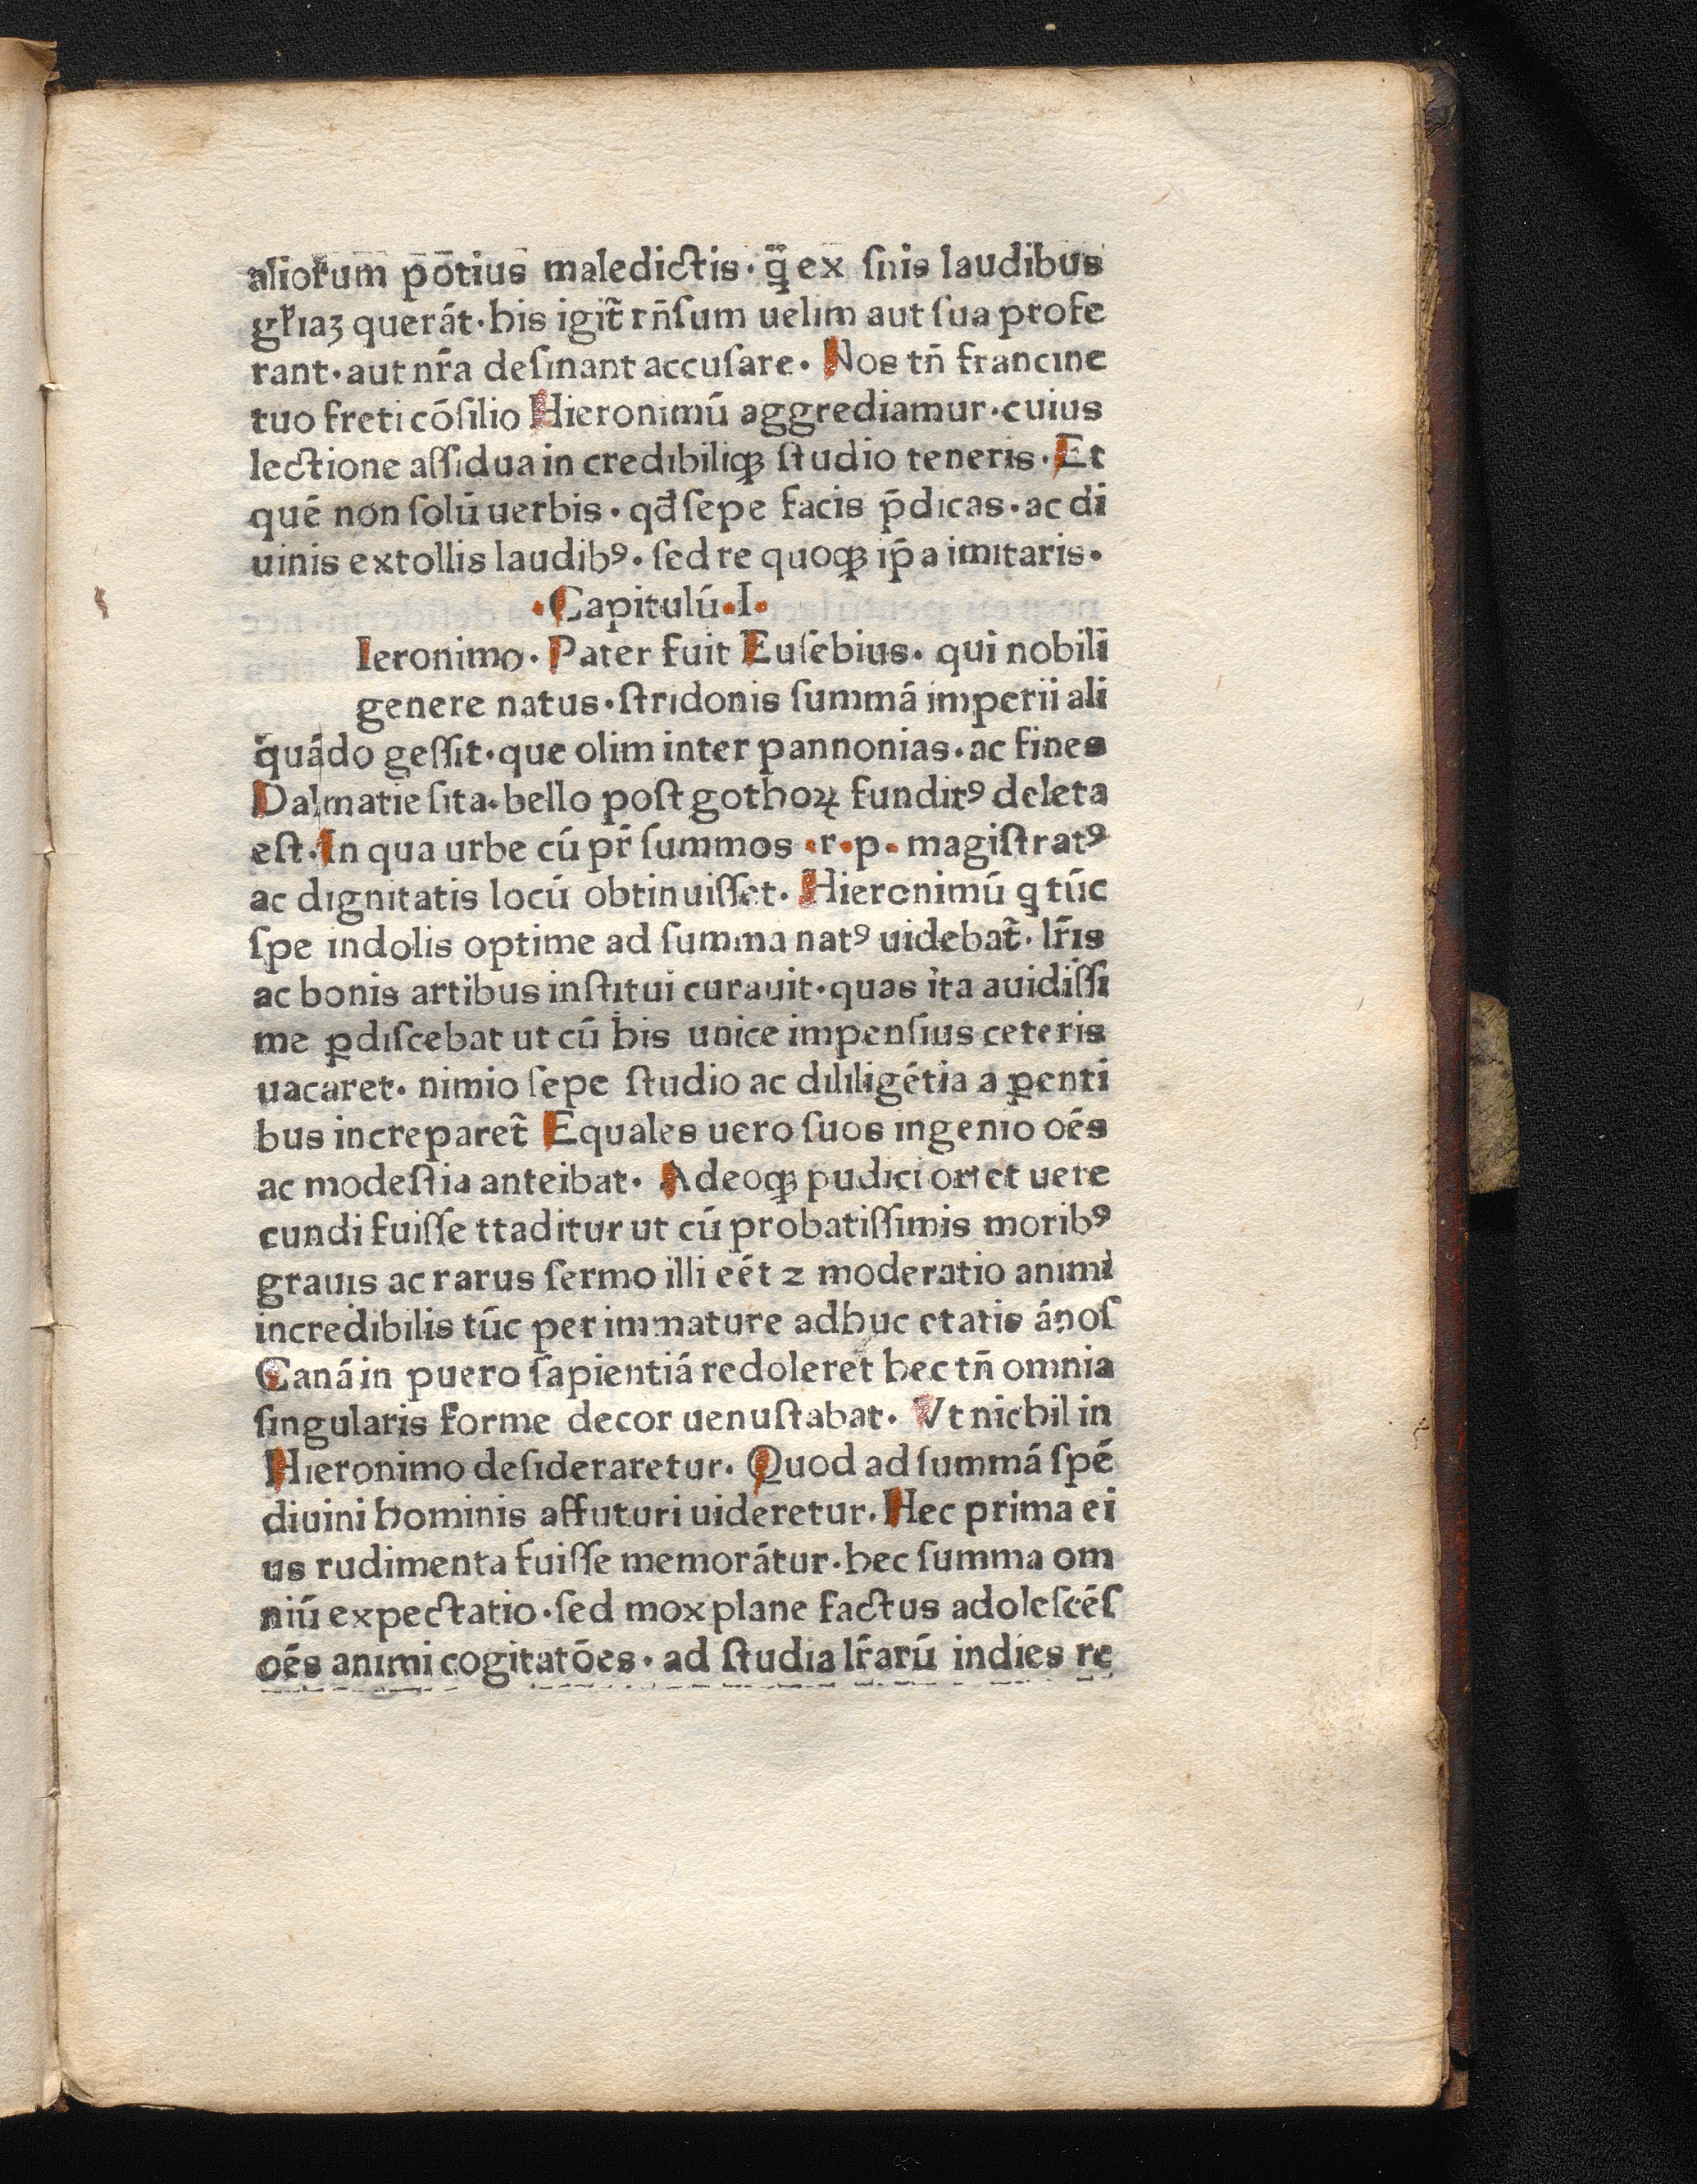 aliorum põtius maledictis · q̃ ex ſnis laudibus
gl̃iaꝫ querát · his igit̃ rñſum uelim aut ſua profe
rant · aut nr̃a deſinant accuſare · Nos tñ francine
tuo freti cõſilio Hieronimũ aggrediamur · cuius
lectione aſſidua in credibiliqꝫ ſtudio teneris · Et
quẽ non ſolũ uerbis · qđ ſepe facis p̃dicas · ac di
uinis extollis laudibꝰ · ſed re quoqꝫ ip̃a imitaris ·
· Capitulũ · I ·
Ieronimo · Pater fuit Euſebius · qui nobili
genere natus · ſtridonis ſummá imperii ali
quádo geſſit · que olim inter pannonias · ac fines
Dalmatie ſita · bello poſt gothoꝝ funditꝰ deleta
eſt · In qua urbe cũ pr̃ ſummos · r · p · magiſtratꝰ
ac dignitatis locũ obtinuiſſet · Hieronimũ q tũc
ſpe indolis optime ad ſumma natꝰ uidebat̃ · lr̃is
ac bonis artibus inſtitui curauit · quas ita auidiſſi
me ꝑdiſcebat ut cũ his unice impenſius ceteris
uacaret · nimio ſepe ſtudio ac dililigétia a ꝑenti
bus increparet̃ Equales uero ſuos ingenio oés
ac modeſtia anteibat · Adeoqꝫ pudici oris et uere
cundi fuiſſe ttaditur ut cũ probatiſſimis moribꝰ
grauis ac rarus ſermo illi eét ⁊ moderatio animi
incredibilis tũc per immature adhuc etatis ánoſ
Caná in puero ſapientiá redoleret hec tñ omnia
ſingularis forme decor uenuſtabat · Vt nichil in
Hieronimo deſideraretur · Quod ad ſummá ſpé
diuini hominis affuturi uideretur · Hec prima ei
us rudimenta fuiſſe memorátur · hec ſumma om
niũ expectatio · ſed mox plane factus adoleſcéſ
oés animi cogitatões · ad ſtudia lr̃arũ indies re